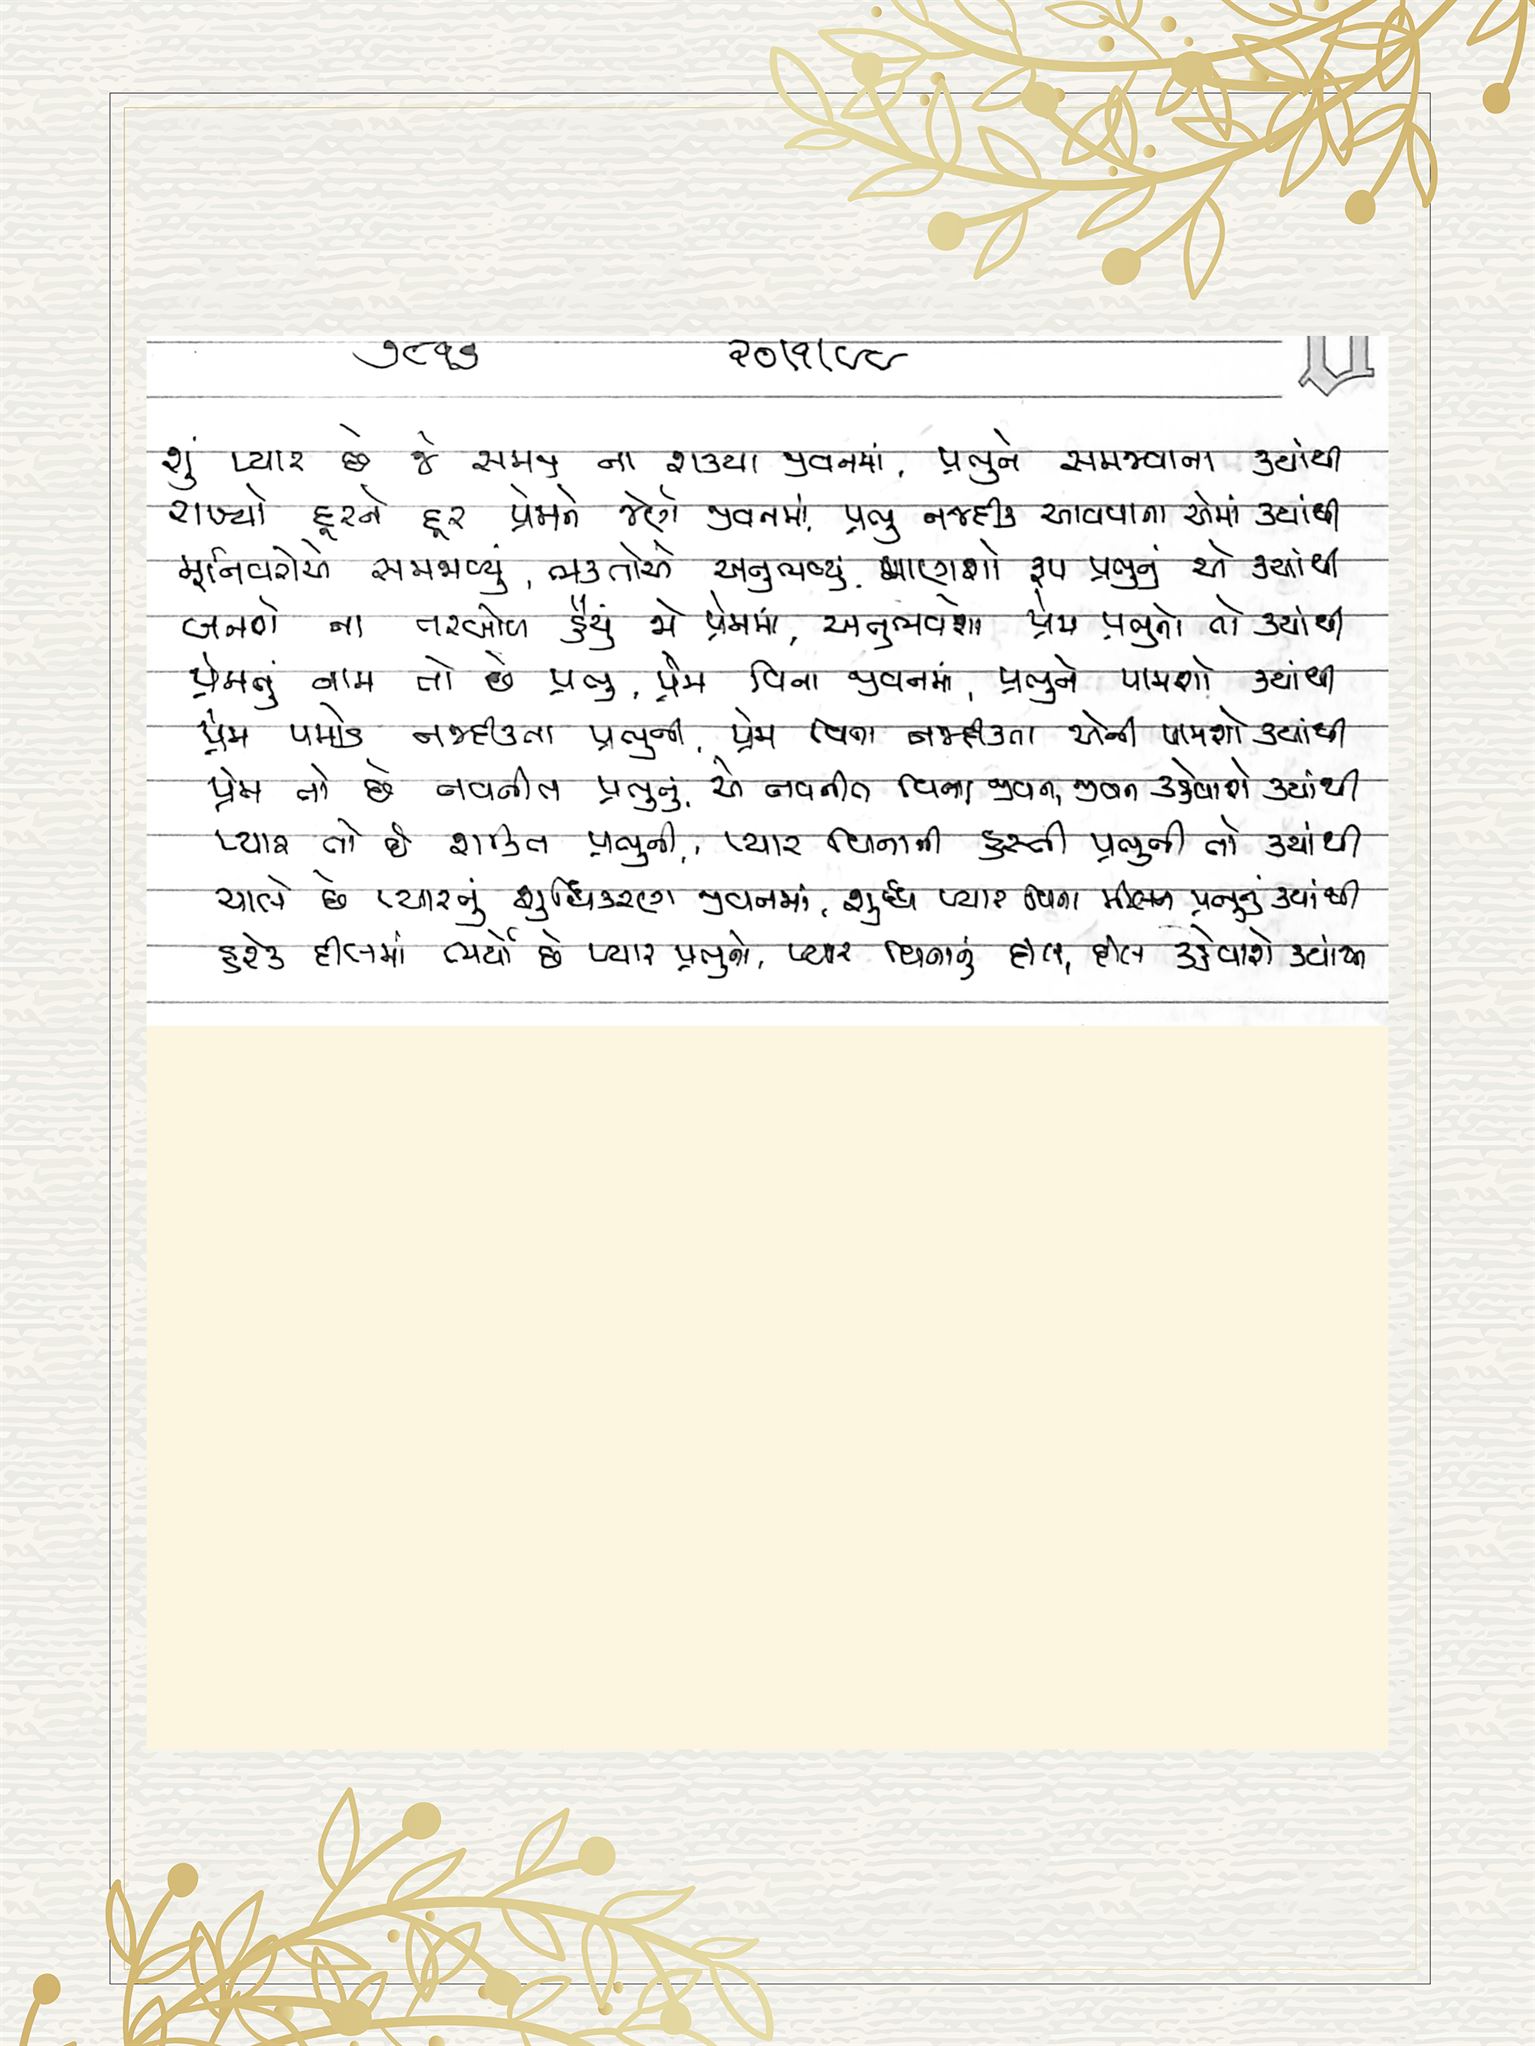 ૭૮૧૭ ૨૦/૧/૯૯
શું પ્યાર છે જે સમજી ના શક્યા જીવનમાં, પ્રભુને સમજવાના ક્યાંથી
રાખ્યો દૂરને દૂર પ્રેમને જેણે જીવનમાં, પ્રભુ નજદીક આવવાના એમાં ક્યાંથી
મુનિવરોએ સમજાવ્યું, ભક્તોએ અનુભવ્યું, માણશો રૂપ પ્રભુનું એ ક્યાંથી
બનશે ના તરબોળ હૈયું જે પ્રેમમાં, અનુભવશો પ્રેમ પ્રભુનો તો ક્યાંથી
પ્રેમનું નામ તો છે પ્રભુ, પ્રેમ વિના જીવનમાં, પ્રભુને પામશો ક્યાંથી
પ્રેમ પમાડે નજદીકતા પ્રભુની, પ્રેમ વિના નજદીકતા એની પામશો ક્યાંથી
પ્રેમ તો છે નવનીત પ્રભુનું, એ નવનીત વિના જીવન, જીવન કહેવાશે ક્યાંથી
પ્યાર તો છે શક્તિ પ્રભુની, પ્યાર વિનાની હસ્તી પ્રભુની તો ક્યાંથી
ચાલે છે પ્યારનું શુદ્ધિકરણ જીવનમાં, શુદ્ધ પ્યાર વિના મીલન પ્રભુનું ક્યાંથી
હરેક દીલમાં ભર્યો છે પ્યાર પ્રભુએ, પ્યાર વિનાનું દીલ, દીલ કહેવાશે ક્યાંથી